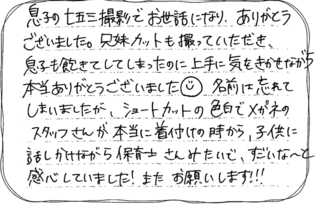 息子の七五三撮影でお世話になり、ありがとう
ございました。兄妹カットも撮っていただき、
息子も飽きてしてしまったのに上手に気をきかせながら
本当ありがとうございました☺ 名前は忘れて
しまいましたが、ショートカットの色白でメガネの
スタッフさんが本当に着付けの時から、子供に
話しかけながら保育士さんみたいで、すごいな〜と
感心していました!またお願いします!!!